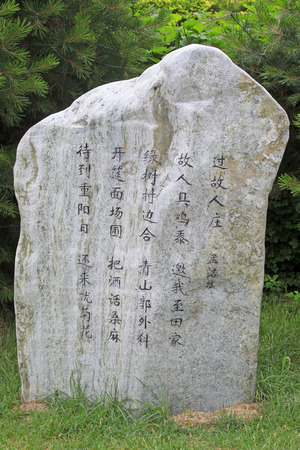 过故人庄 孟浩然
故人具鸡黍 邀我至田家
绿树村边合 青山郭外斜
开筵面场圃 把酒话桑麻
待到重阳日 还来就菊花